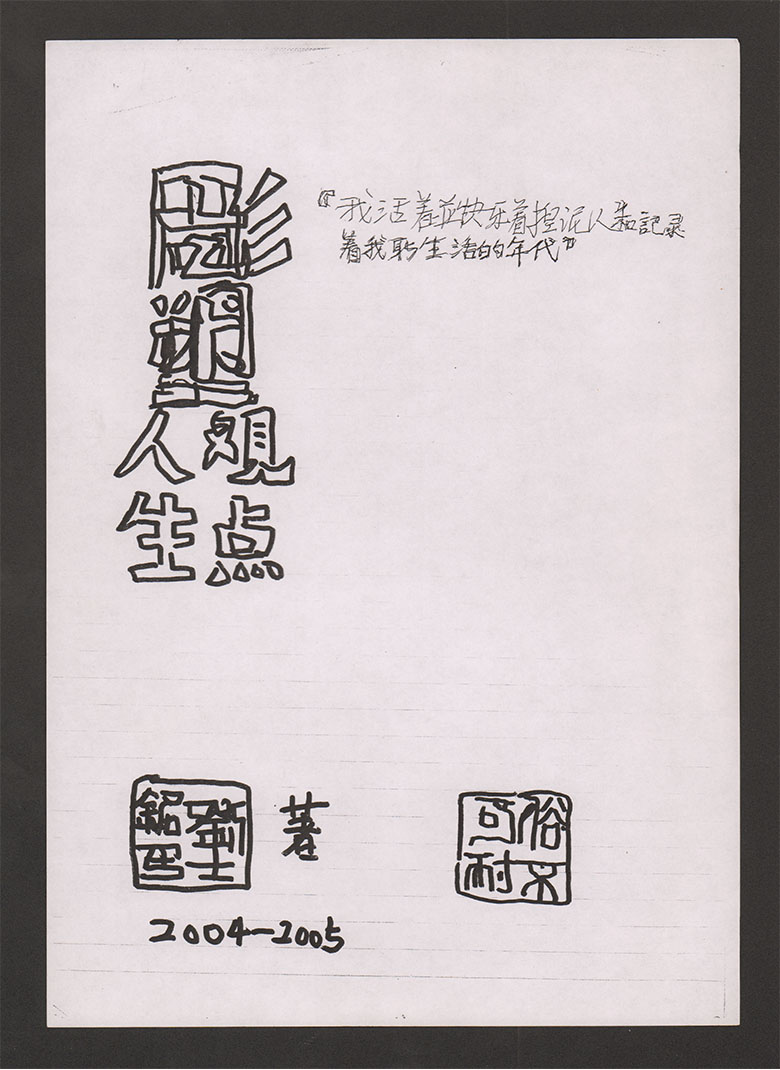 彫
塑
人观
生点
“我活着並快乐着捏泥人和記录
着我所生活的年代”
劉士銘印
著
俗不可耐
2004-2005